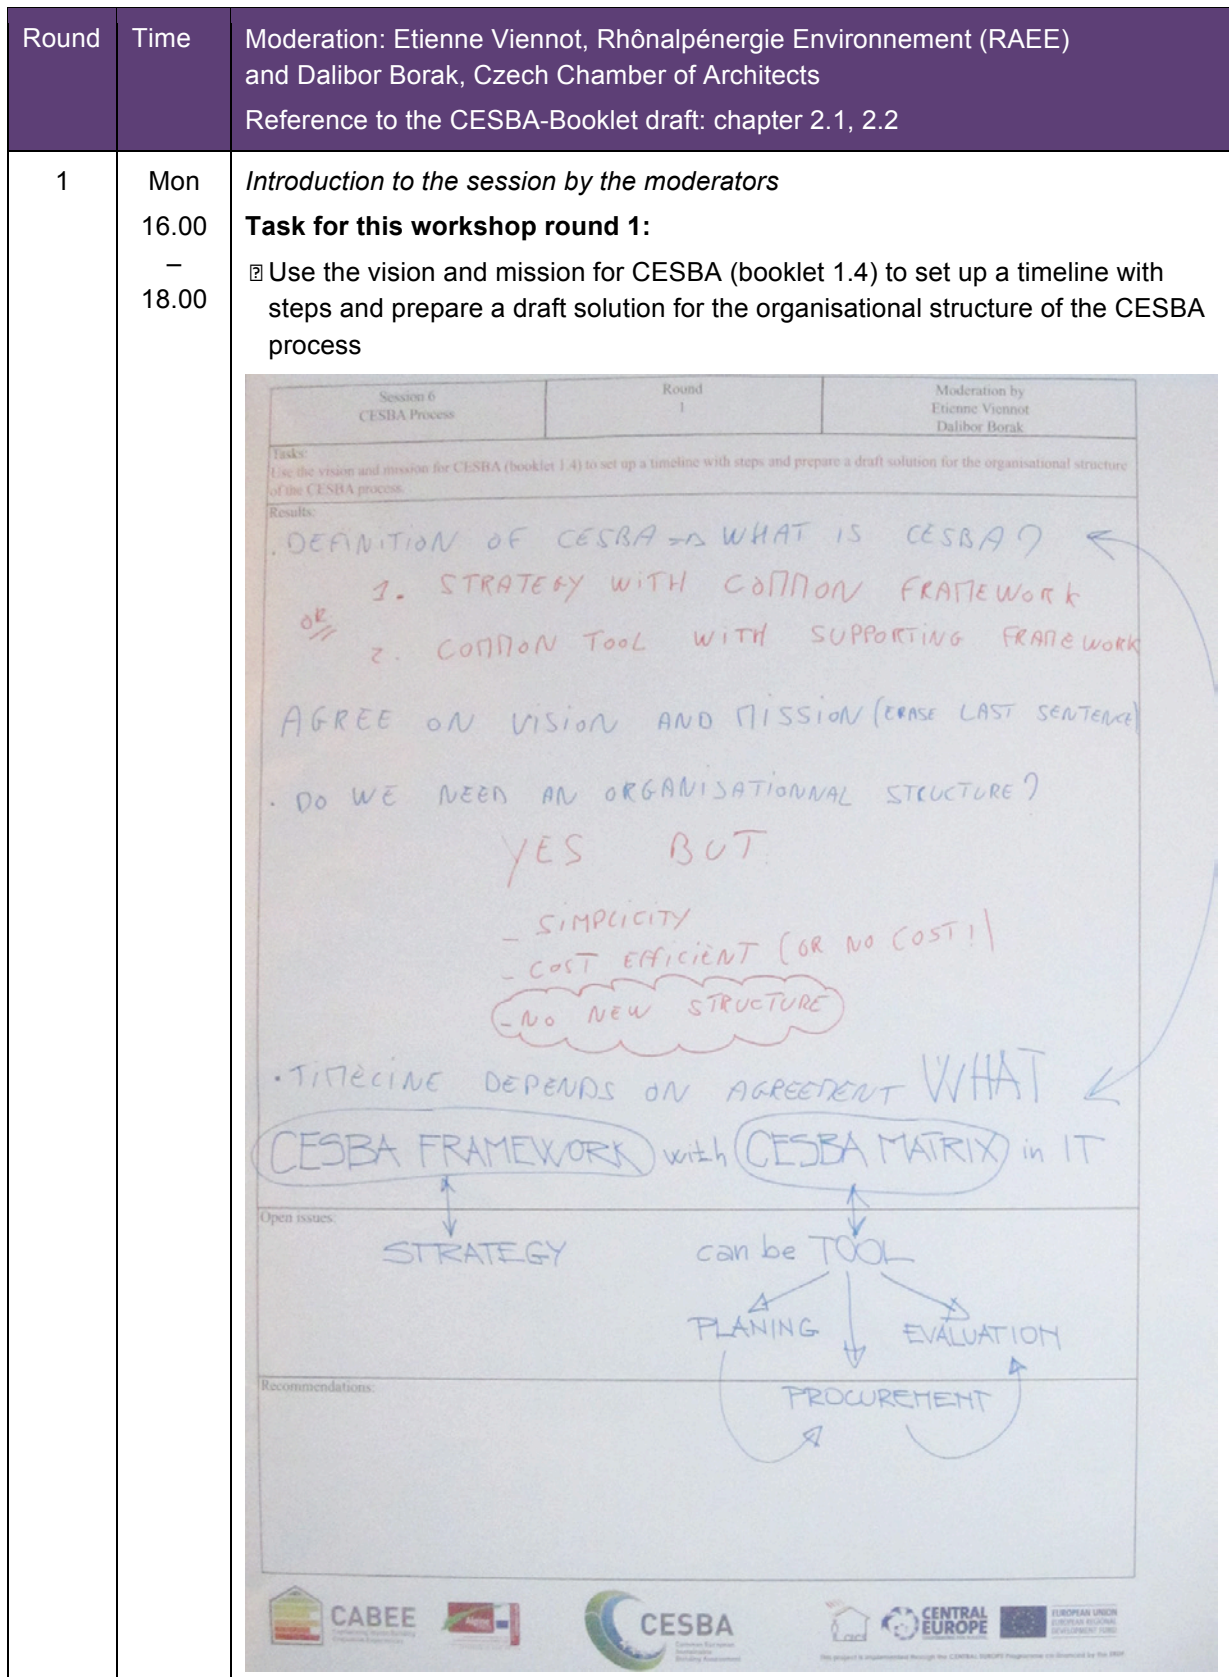 Round
Time
Moderation: Etienne Viennot, Rhônalpénergie Environnement (RAEE)
and Dalibor Borak, Czech Chamber of Architects
Reference to the CESBA-Booklet draft: chapter 2.1, 2.2
1
Mon
16.00
–
18.00
Introduction to the session by the moderators
Task for this workshop round 1:
Use the vision and mission for CESBA (booklet 1.4) to set up a timeline with
steps and prepare a draft solution for the organisational structure of the CESBA
process
Session 6
CESBA Process
Round
1
Moderation by
Etienne Viennot
Dalibor Borak
Tasks:
Use the vision and mission for CESBA (booklet 1.4) to set up a timeline with steps and prepare a draft solution for the organisational structure
of the CESBA process.
Results:
. DEFINITION OF CESBA => WHAT IS CESBA?
1. STRATEGY WITH COMMON FRAMEWORK
OR
2. COMMON TOOL WITH SUPPORTING FRAMEWORK
AGREE ON VISION AND MISSION (ERASE LAST SENTENCE)
. DO WE NEED AN ORGANISATIONNAL STRUCTURE?
YES BUT
- SIMPLICITY
- COST EFFICIENT (OR NO COST!)
- NO NEW STRUCTURE
. TIMELINE DEPENDS ON AGREEMENT WHAT
CESBA FRAMEWORK with CESBA MATRIX in IT
Open issues:
STRATEGY can be TOOL
PLANING EVALUATION
Recommendations:
PROCUREMENT
CABEE
CESBA
Common European
Sustainable
Building Assessment
CENTRAL
EUROPE
EUROPEAN UNION
EUROPEAN REGIONAL
DEVELOPMENT FUND
This project is implemented through the CENTRAL EUROPE Programme co-financed by the ERDF